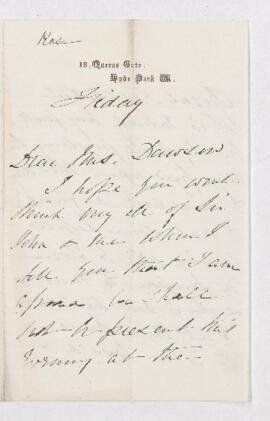 18, Queens Gate,
Hyde Park W.
Friday
Dear Mrs. Dawson
I hope you wont
think very ill of Sir
John & me when I
tell you that I am
afraid we shall
not be present this
evening at the